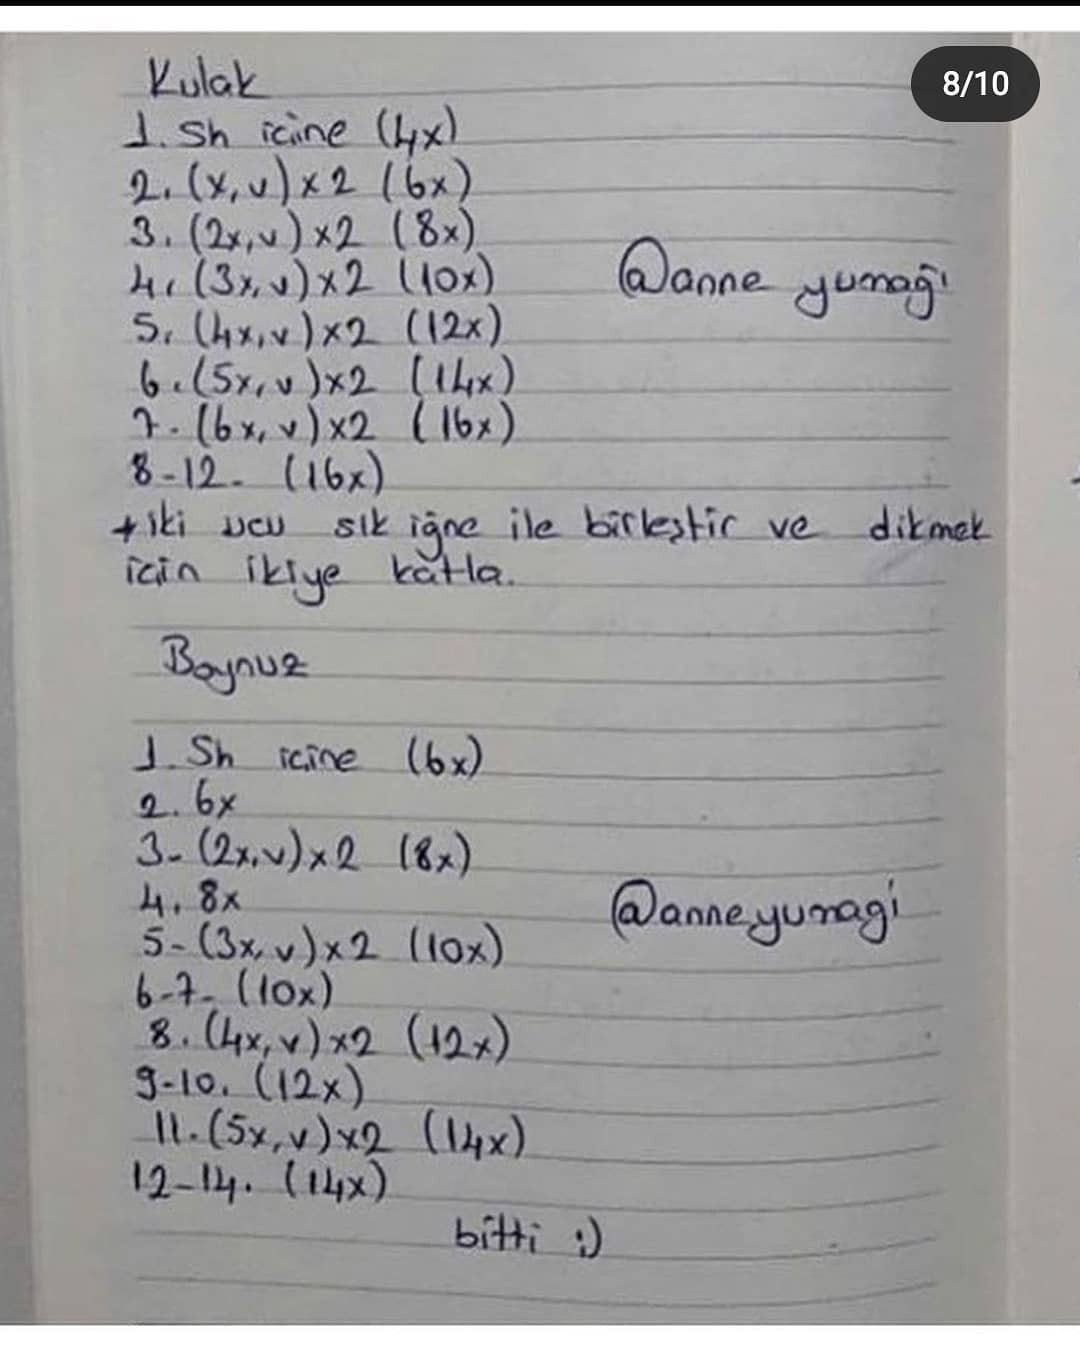 8/10
Kulak
1. Sh içine (4x)
2. (x, v) x 2 (6x)
3. (2x, v) x2 (8x)
4. (3x, v) x 2 (10x)
@anne yumağı
5. (4x, v) x2 (12x)
6. (5x, v) x2 (14x)
7. (6x, v) x2 (16x)
8-12. (16x)
+ iki ucu sık iğne ile birleştir ve dikmek
için ikiye katla.
Boynuz
1. Sh içine (6x)
2. 6x
3- (2x, v) x 2 (8x)
4. 8x
@anneyumagi
5- (3x, v) x 2 (10x)
6-7- (10x)
8. (4x, v) x2 (12x)
9-10. (12x)
11. (5x, v) x2 (14x)
12-14. (14x)
bitti :)